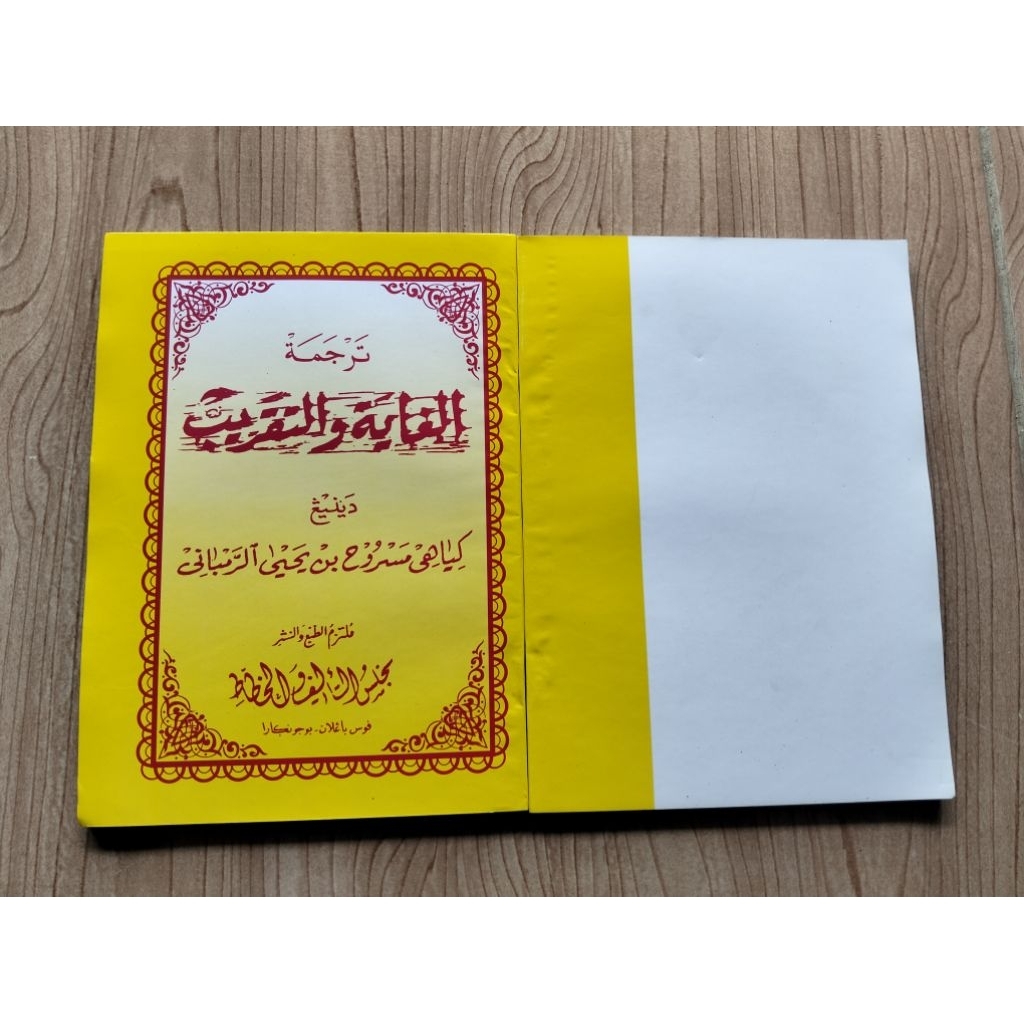 تَرْجَمَة
الغاية والتقريب
دَيْنيْڠ
كِيَاهِىْ مَسْرُوْحْ بِنْ يَحْيٰى الرَّمْبَانِىْ
مُلتزمُ الطبْعِ والنشْرِ
مجلس التأليف والخطاط
فوس باڠلان - بوجونكارا